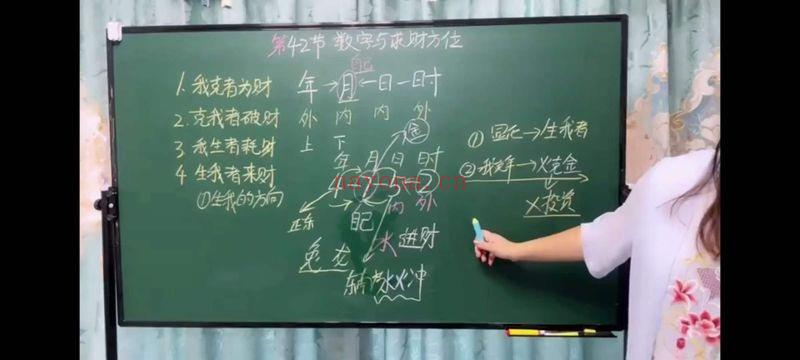 第42节 数字与求财方位
1. 我克者为财
2. 克我者破财
3 我生者耗财
4 生我者来财
①生我的方向
自己
年→月一日一时
外 内 内 外
上 下
年 月 日 时
内 外
正东
自己
兔 龙
水 进财
水火冲
①
→生我者
→火克金
X投资
nayona.cn